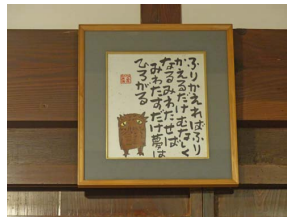 ふりかえればふり
かえるだけむなしく
なるみわたせば
みわたすだけ夢は
ひろがる